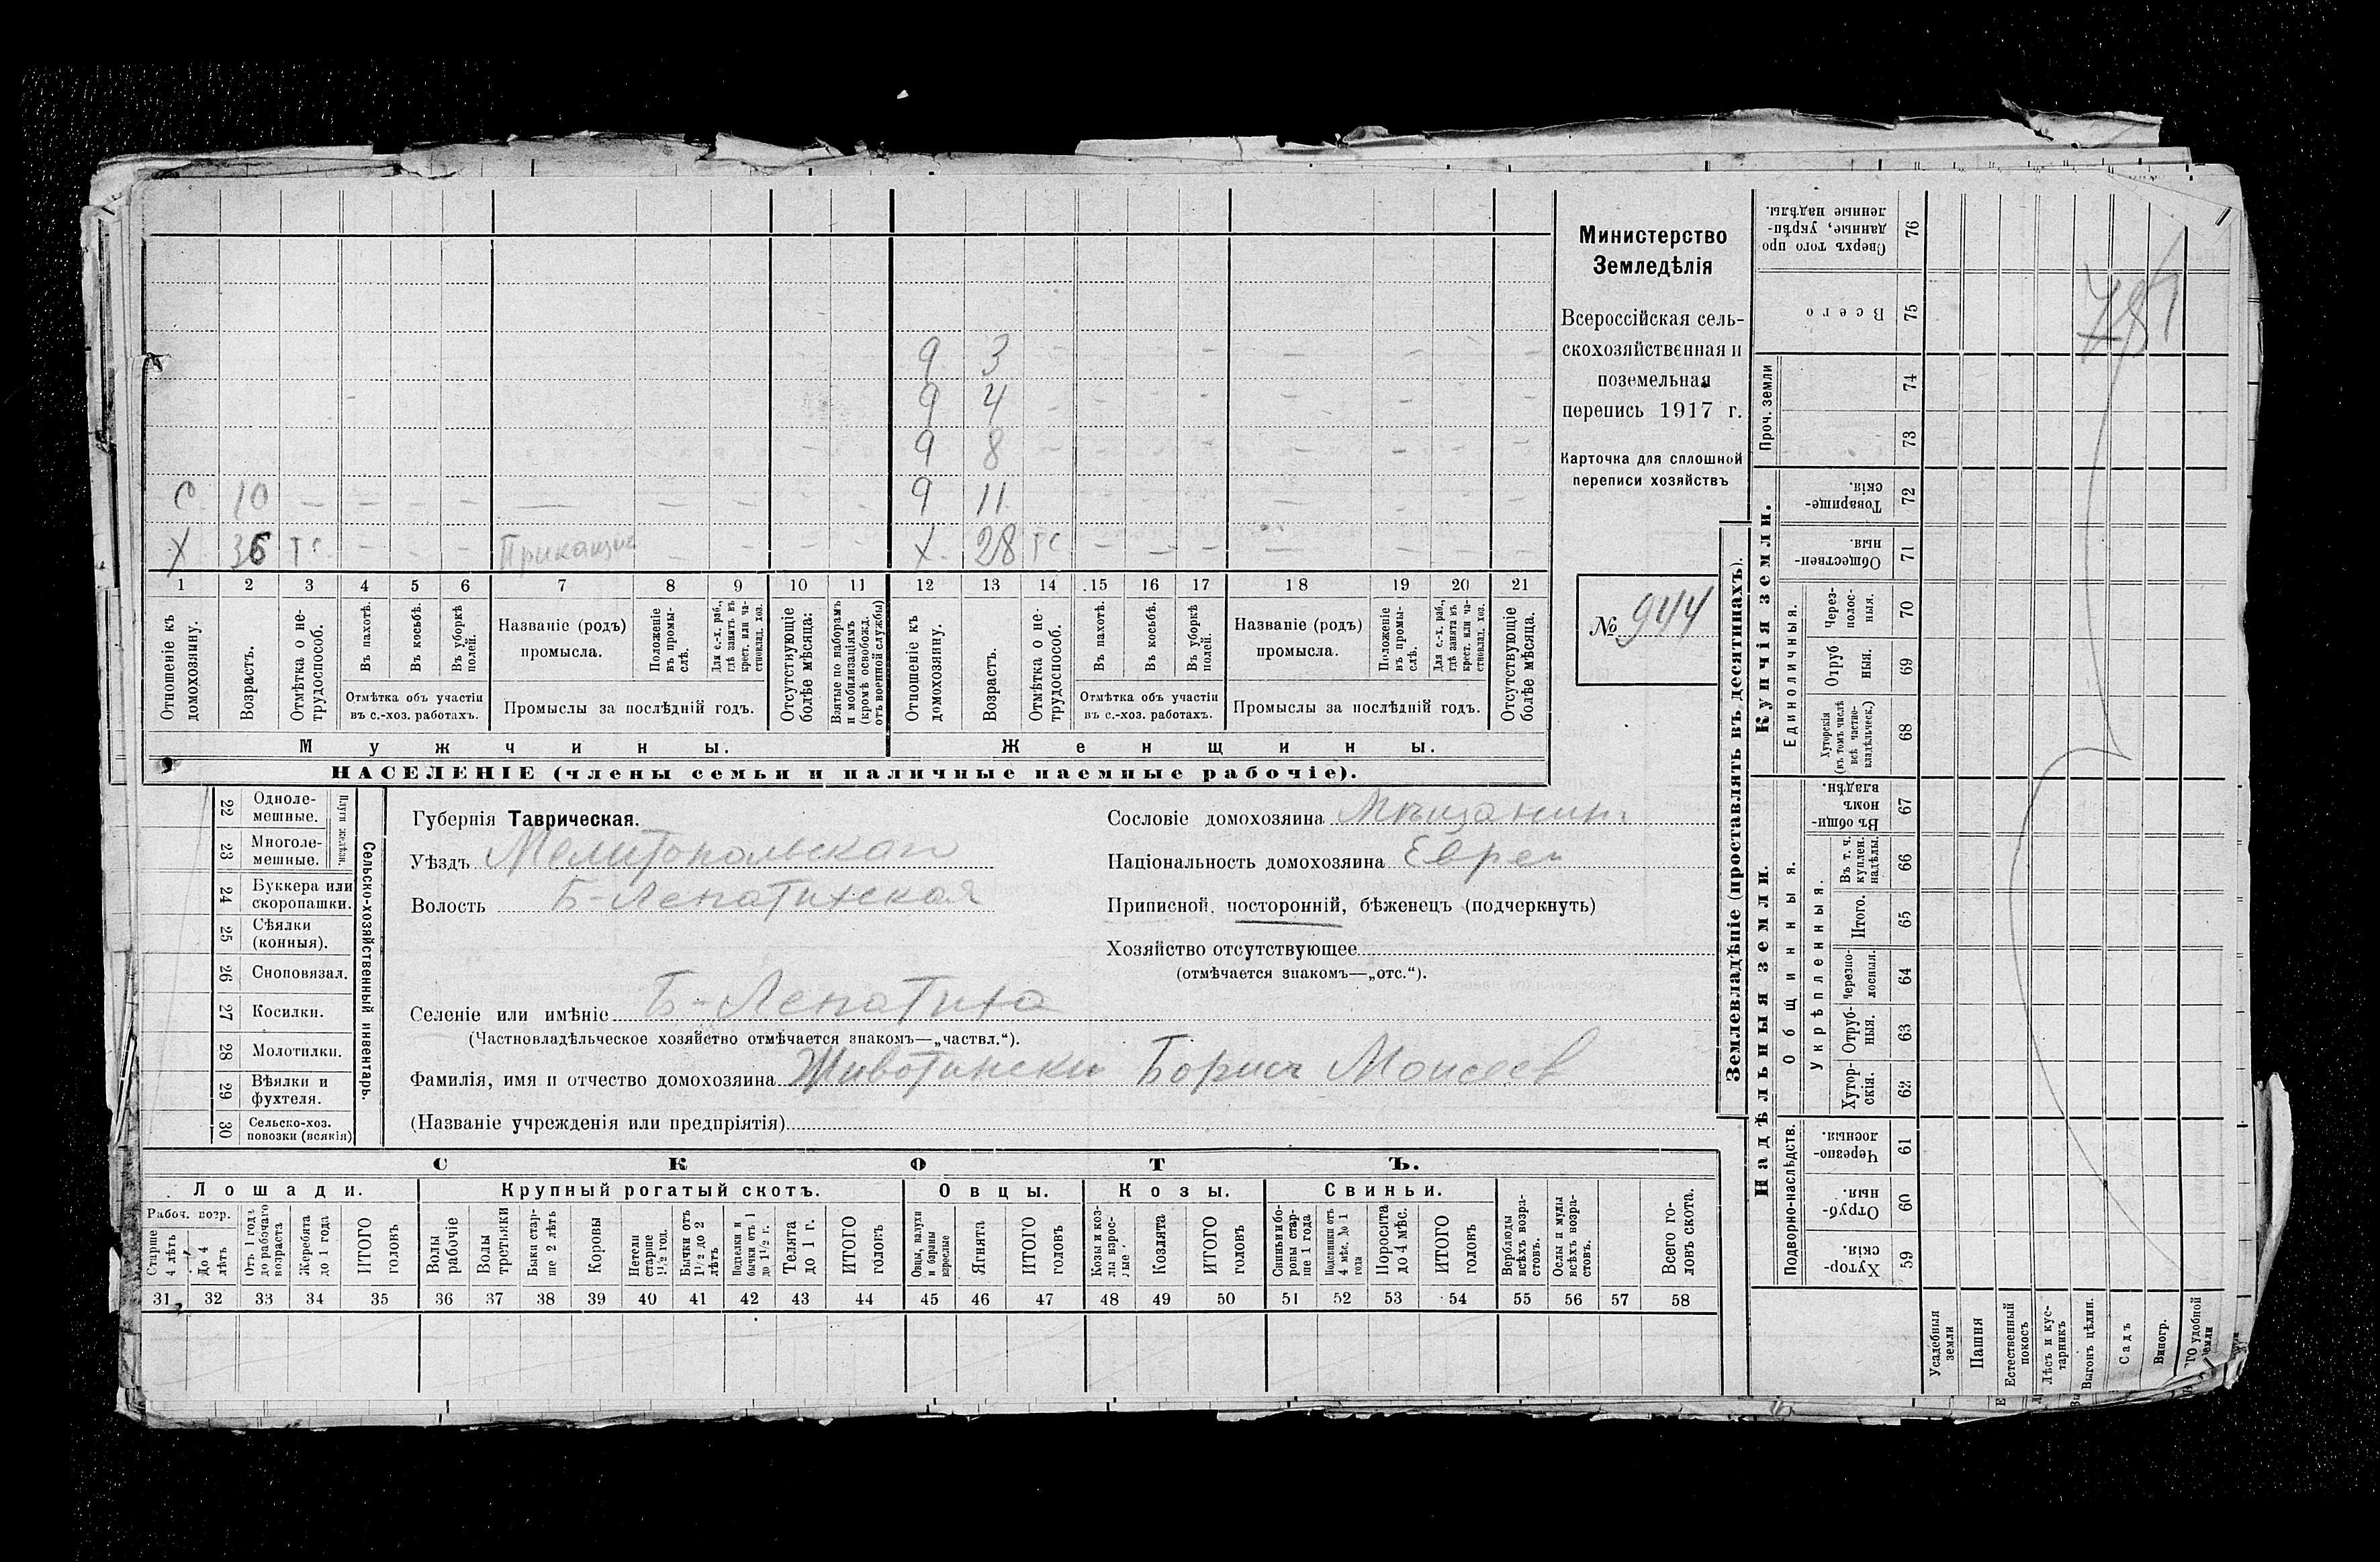 Министерство
Земледѣлія
Всероссійская сель-
скохозяйственная и
поземельная
перепись 1917 г.
Карточка для сплошной
переписи хозяйствъ
№ 944
9 3
9 4
9 8
С. 10 — — — — — — — 9 11
Х 36 тс — — — Приказчик — — Х. 28 тс — — — — — —
1 2 3 4 5 6 7 8 9 10 11 12 13 14 15 16 17 18 19 20 21
Отношеніе къ домохозяину.
Возрастъ.
Отмѣтка о не-трудоспособ.
Въ пахотѣ.
Въ косьбѣ.
Въ уборкѣ полей.
Отмѣтка объ участіи
въ с.-хоз. работахъ.
Названіе (родъ)
промысла.
Положеніе въ промы-слѣ.
Для с.-х. раб., гдѣ занятъ въ крест. или ча-стновлад. хоз.
Промыслы за послѣдній годъ.
Отсутствующіе болѣе мѣсяца:
Взятые по наборамъ и мобилизаціямъ (кромѣ освобожд. отъ военной службы)
Отношеніе къ домохозяину.
Возрастъ.
Отмѣтка о не-трудоспособ.
Въ пахотѣ.
Въ косьбѣ.
Въ уборкѣ полей.
Отмѣтка объ участіи
въ с.-хоз. работахъ.
Названіе (родъ)
промысла.
Положеніе въ промы-слѣ.
Для с.-х. раб., гдѣ занята въ крест. или ча-стновлад. хоз.
Промыслы за послѣдній годъ.
Отсутствующіе болѣе мѣсяца.
Мужчины. Женщины.
НАСЕЛЕНІЕ (члены семьи и наличные наемные рабочіе).
22 Одноле-мешные.
23 Многоле-мешные.
Плуги желѣзн.
24 Буккера или скоропашки.
25 Сѣялки (конныя).
26 Сноповязал.
27 Косилки.
28 Молотилки.
29 Вѣялки и фухтеля.
30 Сельско-хоз. повозки (всякія)
Сельско-хозяйственный инвентарь.
Губернія Таврическая.
Уѣздъ Мелитопольскаго
Волость Б-Лепатихская
Сословіе домохозяина Мѣщанинъ
Національность домохозяина Еврей
Приписной, посторонній, бѣженецъ (подчеркнуть)
Хозяйство отсутствующее
(отмѣчается знакомъ—„отс.“).
Селеніе или имѣніе Б-Лепатиха
(Частновладѣльческое хозяйство отмѣчается знакомъ—„частвл.“).
Фамилія, имя и отчество домохозяина Животински Борисъ Моисеев
(Названіе учрежденія или предпріятія)
СКОТЪ.
Лошади. Крупный рогатый скотъ. Овцы. Козы. Свиньи.
Рабоч. возр.
Старше 4 лѣтъ
До 4 лѣтъ
Отъ 1 года до рабочаго возраста
Жеребята до 1 года
ИТОГО головъ
Волы рабочіе
Волы третьяки
Быки стар-ше 2 лѣтъ
Коровы
Нетели старше 1½ год.
Бычки отъ 1½ до 2 лѣтъ
Подтелки и бычки отъ 1 до 1½ г.
Телята до 1 г.
ИТОГО головъ
Овцы, валухи и бараны взрослые
Ягнята
ИТОГО головъ
Козы и коз-лы взрос-лые
Козлята
ИТОГО головъ
Свиньи и бо-ровы стар-ше 1 года
Подсвинки отъ 4 мѣс. до 1 года
Поросята до 4 мѣс.
ИТОГО головъ
Верблюды всѣхъ возра-стовъ.
Ослы и мулы всѣхъ возра-стовъ.
Всего го-ловъ скота.
31 32 33 34 35 36 37 38 39 40 41 42 43 44 45 46 47 48 49 50 51 52 53 54 55 56 57 58
Землевладѣніе (проставлять въ десятинахъ).
Купчія земли.
Надѣльныя земли.
Сверхъ того про данные, укрѣп-ленные надѣлы. 76
Всего 75
Проч. земли 74
73
Товарище-скія. 72
Обществен-ныя. 71
Единоличныя.
Через-полос-ныя. 70
Отруб-ныя. 69
Хуторскія (въ томъ числѣ всѣ частно-владѣльческ.) 68
Общинныя.
Въ общи-номъ владѣн. 67
Укрѣпленныя.
Въ т. ч. куплен. надѣлы. 66
Итого. 65
Черезпо-лосныя. 64
Отруб-ныя. 63
Хутор-скія. 62
Подворно-наслѣдств.
Черезпо-лосныя. 61
Отруб-ныя. 60
Хутор-скія. 59
Усадебныя земли
Пашня
Естественный покосъ
Лѣсъ и кус-тарникъ
Выгонъ цѣлин.
Садъ
Виногр.